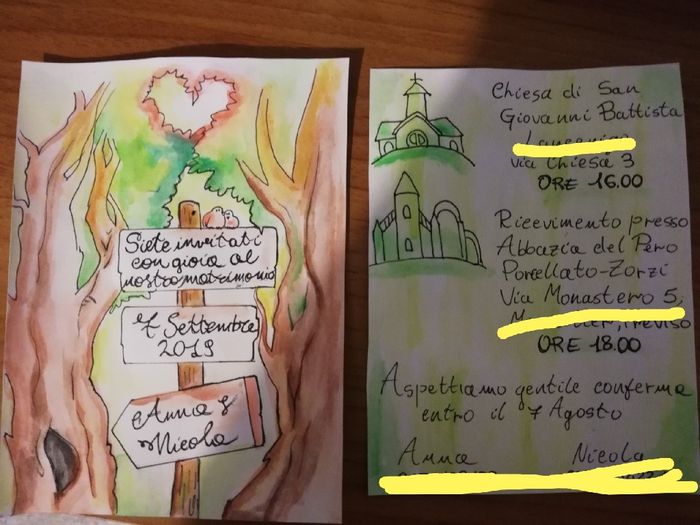 Siete invitati
con gioia al
nostro matrimonio
7 Settembre
2019
Anna &
Nicola
Chiesa di San
Giovanni Battista
via Chiesa 3
ORE 16.00
Ricevimento presso
Abbazia del Pero
Porcellato-Zorzi
Via Monastero 5,
Treviso
ORE 18.00
Aspettiamo gentile conferma
entro il 7 Agosto
Anna Nicola